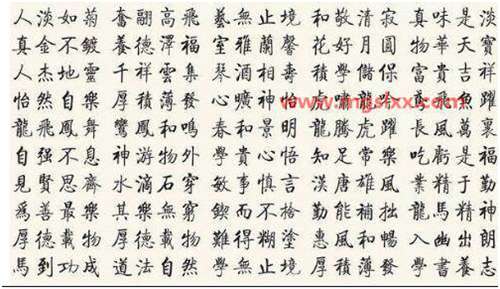 人淡如菊 奮翮高飛 藝無止境 和敬清寂 真味是淡
真金不鍍 養德澤福 室雅蘭馨 花好月圓 物華天寶
人杰地靈 千祥雲集 琴 積學儲 富貴吉祥
怡然自樂 厚積薄發 心曠神怡 飛魚躍
www.mgslxx.com
龍飛鳳舞 鸞鳳和鳴 春和景明 龍騰虎躍 長風萬裏
自强不息 神游物外 學貴心悟 知足常樂 吃虧是福
見賢思齊 水滴石穿 敏事慎言 漢唐雄風 業精于勤
爲善最樂 其樂無窮 鍥而不捨 勤能補拙 龍馬精神
厚德載物 厚德載物 難得糊塗 惠風和暢 入幽出朗
馬到功成 道法自然 學無止境 厚積薄發 學書養志